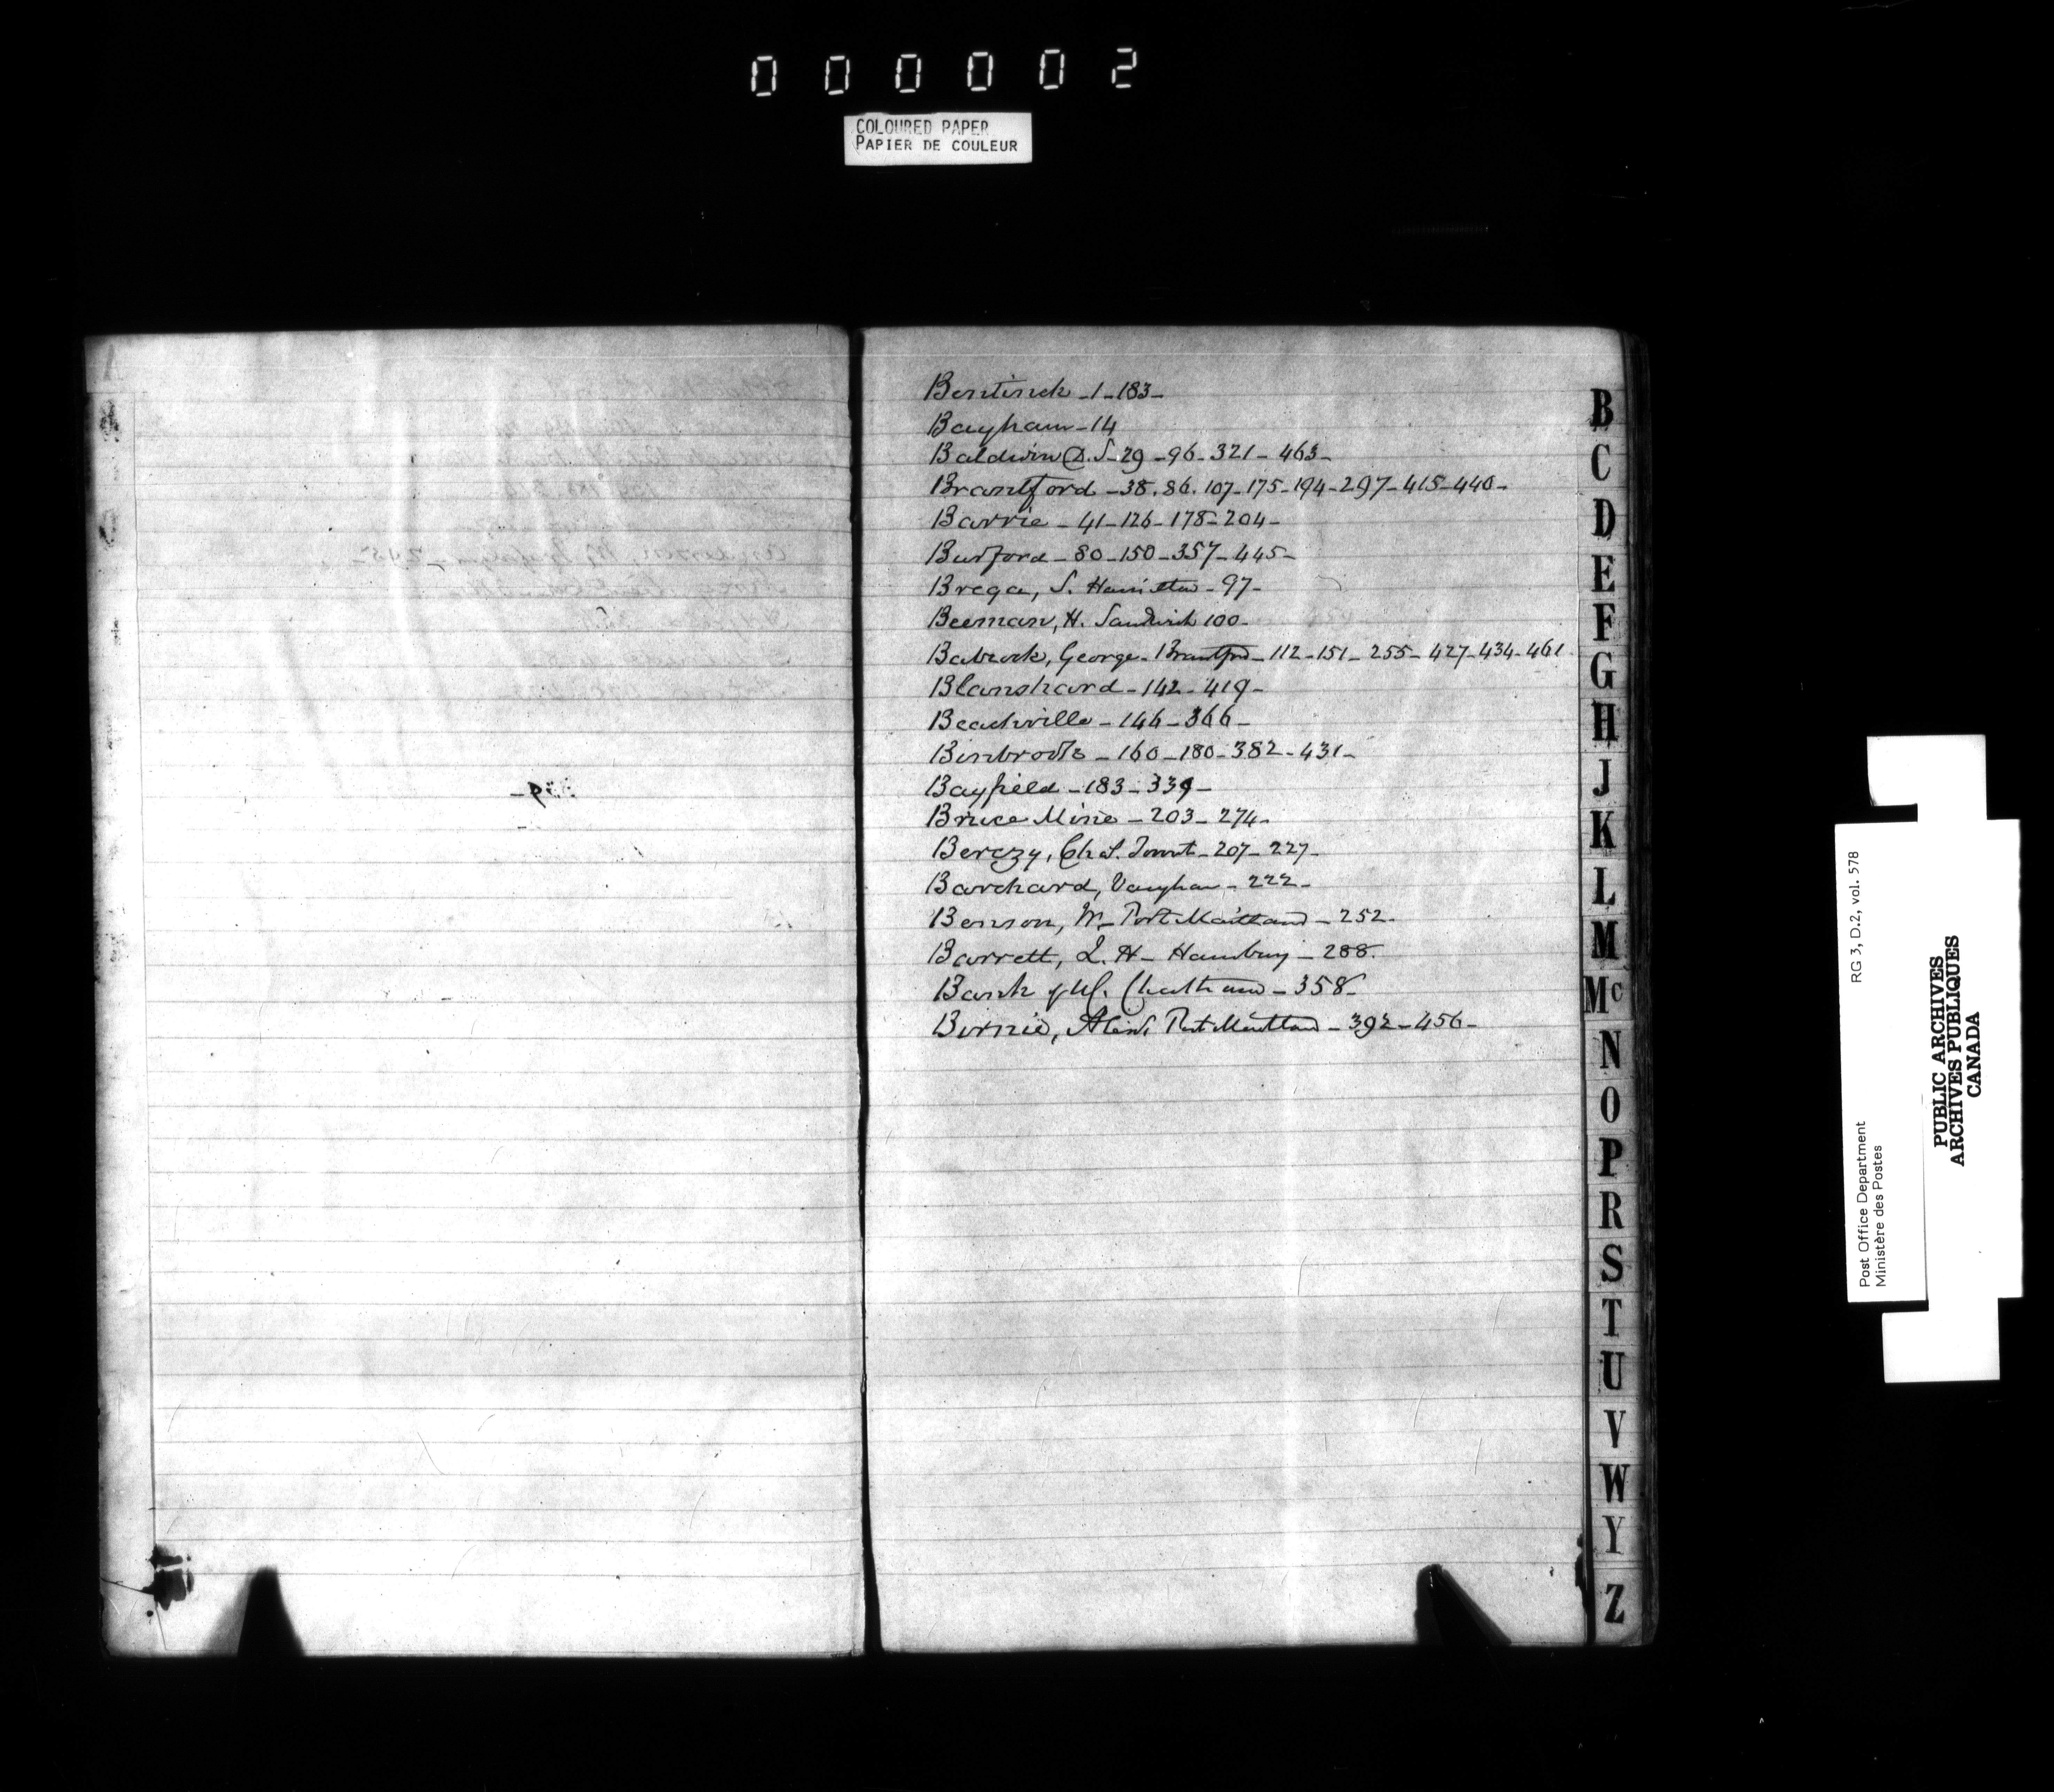 000002
COLOURED PAPER
PAPIER DE COULEUR
Bentinck - 1 - 183 -
Bayham - 14
Baldwin D. S - 29 - 96 - 321 - 463 -
Brantford - 38. 86. 107 - 175 - 194 - 297 - 415 - 440 -
Barrie - 41 - 126 - 178 - 204 -
Burford - 80 - 150 - 357 - 445 -
Brega, S. Hamilton - 97 -
Beeman, H. Sandwich 100 -
Babcock, George - Brantford - 112 - 151 - 255 - 427 - 434 - 461
Blanshard - 142 - 419 -
Beachville - 146 - 366 -
Binbrook - 160 - 180 - 382 - 431 -
Bayfield - 183 - 339 -
Bruce Mine - 203 - 274 -
Berczy, Chs. - 207 - 227 -
Barchard, Vaughan - 222 -
Benson, W - Port Maitland - 252 -
Barrett, L. H - Hamburg - 288.
Bank of U.C. Chatham - 358 -
Birnie, Port Maitland - 392 - 456 -
B
C
D
E
F
G
H
J
K
L
M
Mc
N
O
P
R
S
T
U
V
W
Y
Z
Post Office Department RG 3, D.2, vol. 578
Ministère des Postes
PUBLIC ARCHIVES
ARCHIVES PUBLIQUES
CANADA